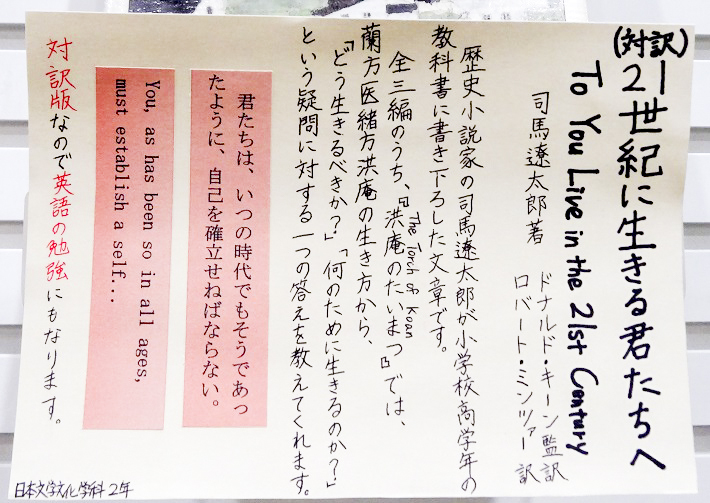 (対訳)
21世紀に生きる君たちへ
To You Live in the 21st Century
司馬遼太郎著
ドナルド・キーン監訳
ロバート・ミンツァー訳
歴史小説家の司馬遼太郎が小学校高学年の
教科書に書き下ろした文章です。
全三編のうち、『洪庵のたいまつ』では、
The Torch of Koan
蘭方医緒方洪庵の生き方から、
「どう生きるべきか?」「何のために生きるのか?」
という疑問に対する一つの答えを教えてくれます。
君たちは、いつの時代でもそうであっ
たように、自己を確立せねばならない。
You, as has been so in all ages,
must establish a self...
対訳版なので英語の勉強にもなります。
日本文学文化学科2年